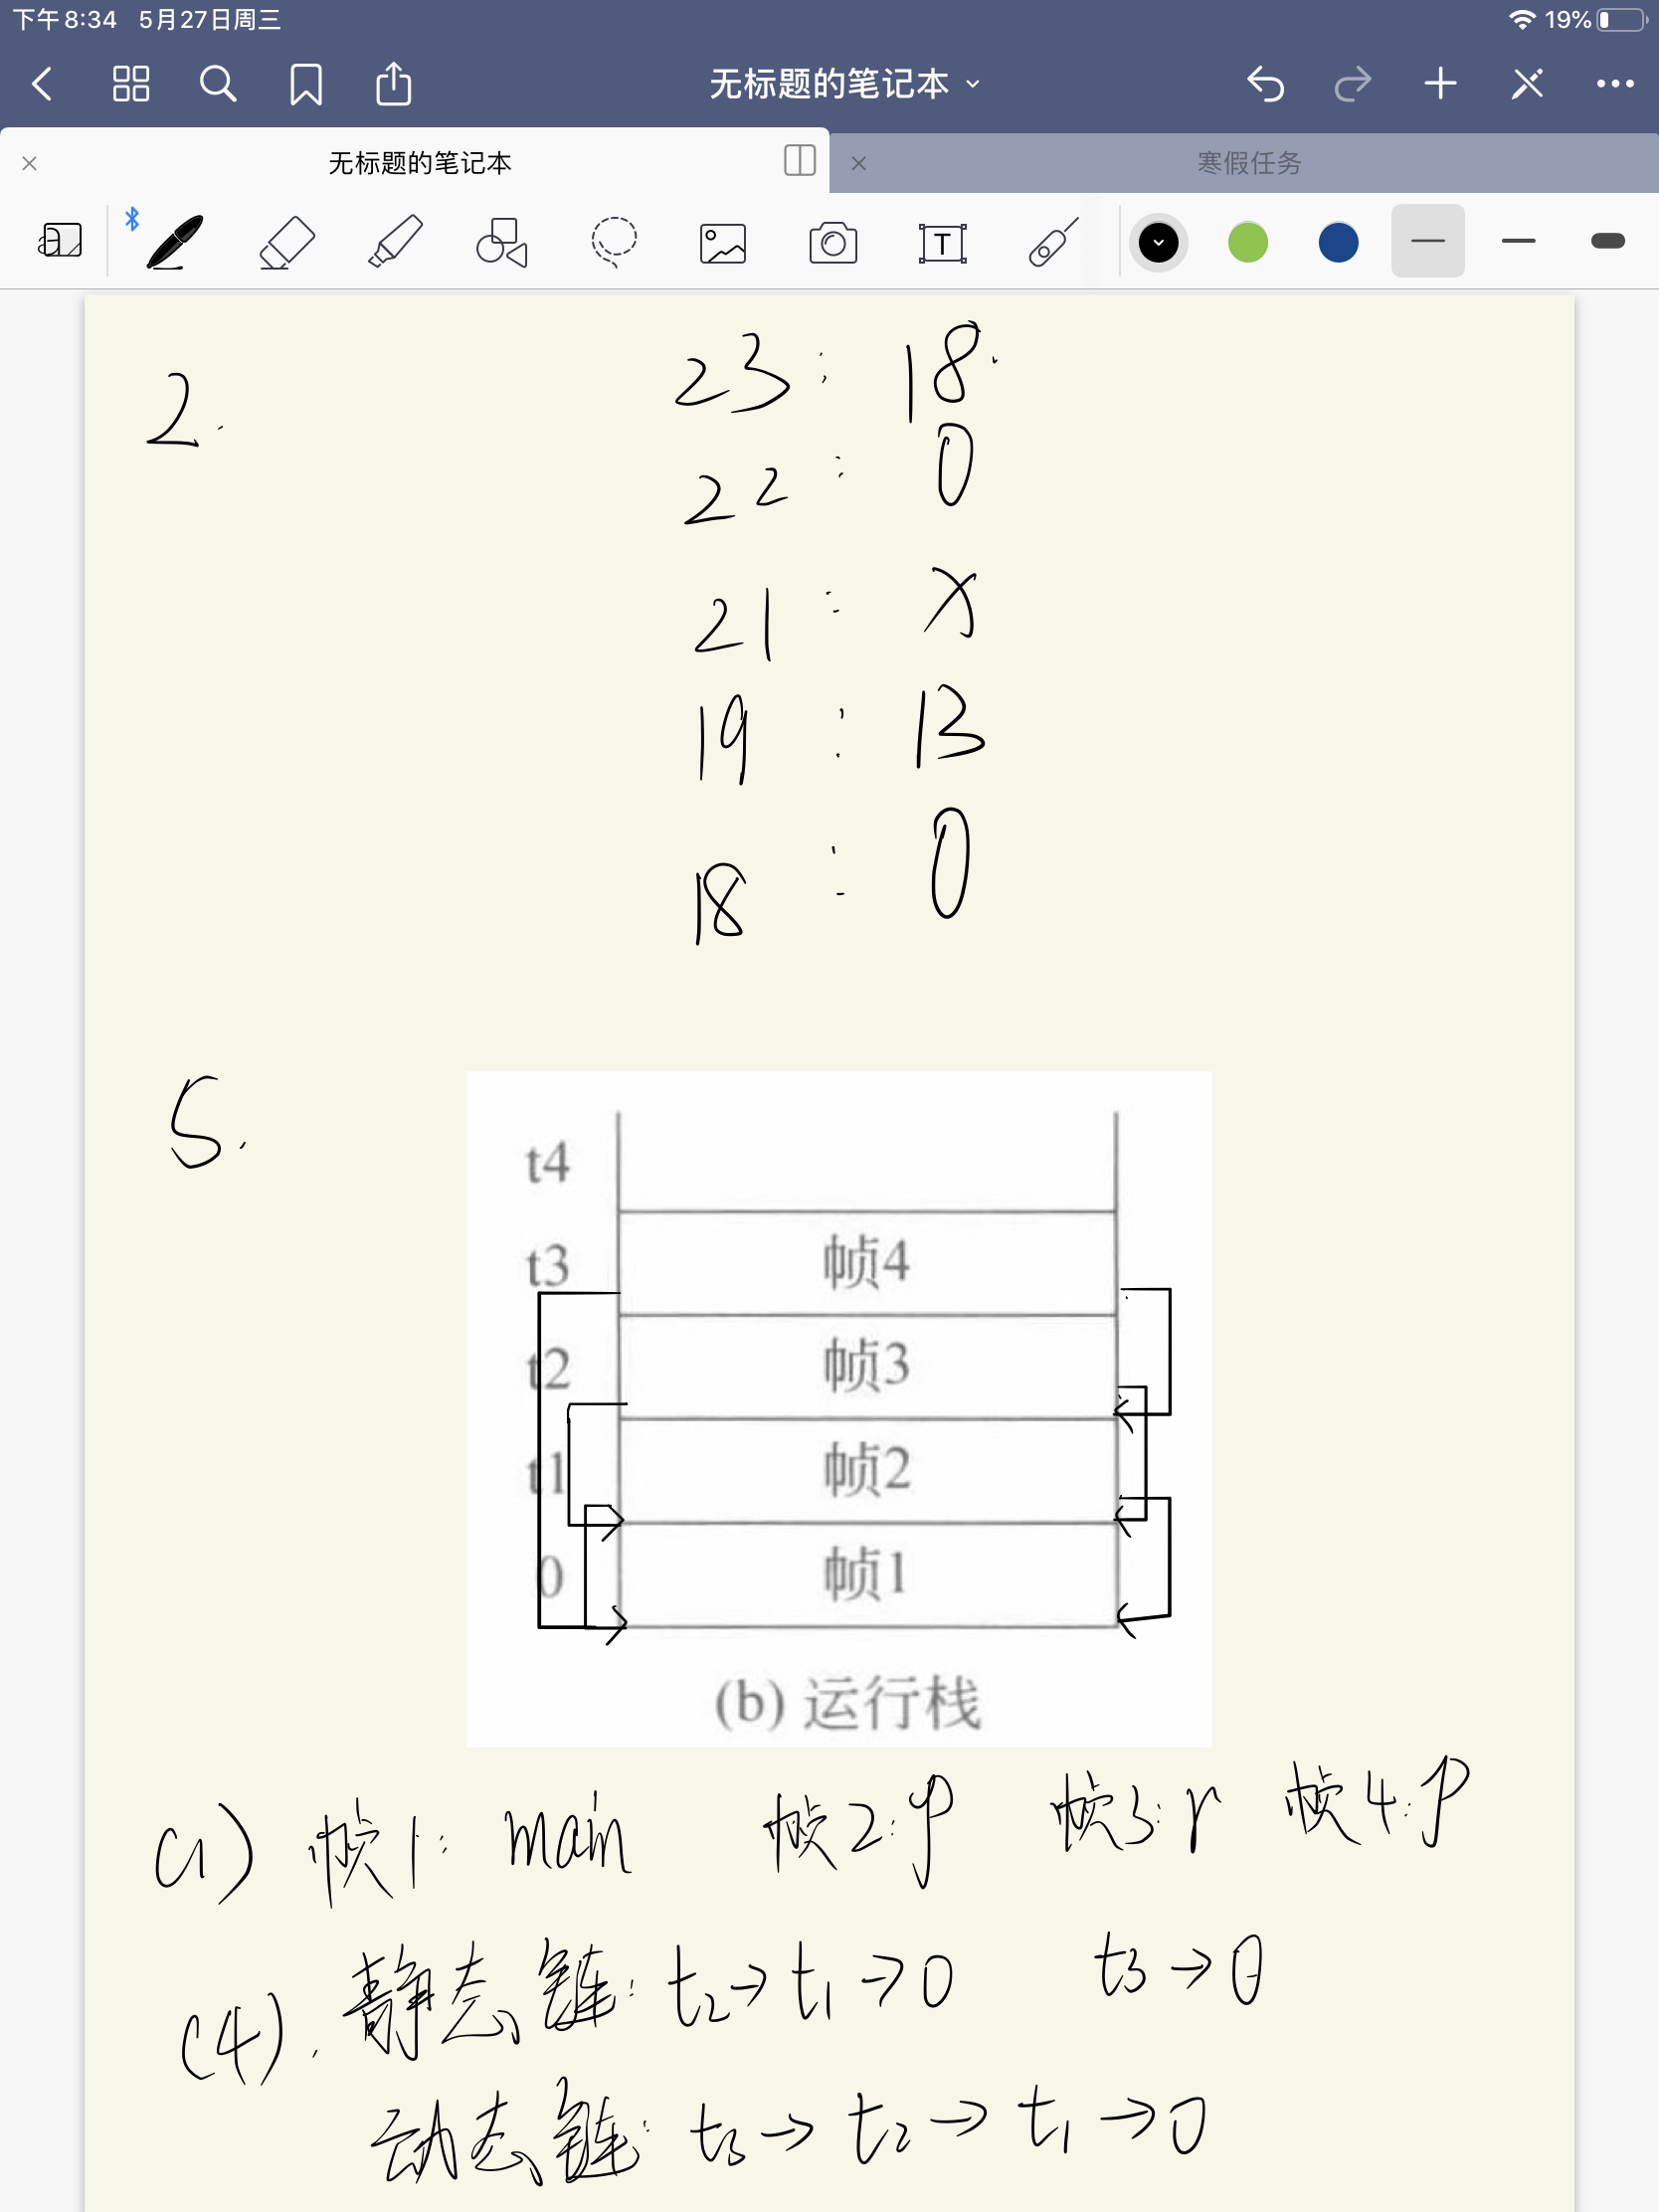 下午8:34 5月27日周三 19%
无标题的笔记本
无标题的笔记本 寒假任务
2. 23: 18
22: 0
21: x
19: 13
18: 0
5.
t4
t3 帧4
t2 帧3
t1 帧2
0 帧1
(b) 运行栈
(1) 帧1: main 帧2: p 帧3: r 帧4: p
(4). 静态链: t2→t1→0 t3→0
动态链: t3→t2→t1→0